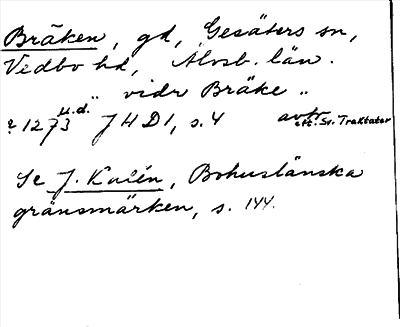 Bräken, gd, Gesäters sn,
Vedbo hd, Älvsb. län.
"vidr Bräke"
u.d.
? 1273 JHD1, s. 4 avtr. eft. Sv. Traktater
Se J. Kalén, Bohuslänska
gränsmärken, s. 144.